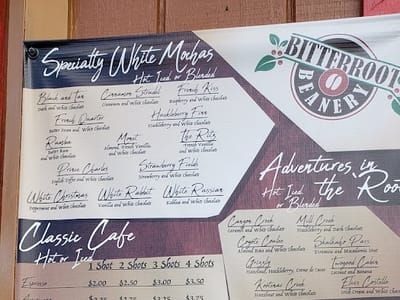 Specialty White Mochas
Hot Iced or Blended
Black and Tan
Dark and White Chocolate
Cinnamon Strudel
Cinnamon and White Chocolate
French Kiss
Raspberry and White Chocolate
French Quarter
Butter Pecan and White Chocolate
Huckleberry Finn
Huckleberry and White Chocolate
Rhumba
Butter Rum
and White Chocolate
Monet
Almond, French Vanilla,
and White Chocolate
The Ritz
French Vanilla
and White Chocolate
Prince Charles
English Toffee and White Chocolate
Strawberry Fields
Strawberry and White Chocolate
White Christmas
Peppermint and White Chocolate
White Rabbit
Vanilla and White Chocolate
White Russian
Kahlua and White Chocolate
BITTERROOT
BEANERY
Classic Cafe
Hot or Iced
1 Shot 2 Shots 3 Shots 4 Shots
Espresso $2.00 $2.50 $3.00 $3.50
Adventures in
the Roo
Hot Iced
or Blended
Canyon Creek
Caramel and White Chocolate
Mill Creek
Huckleberry and Dark Chocolate
Coyote Coulee
Almond and White Chocolate
Skalkaho Pass
Almond, Coconut and Dark Chocolate
Grizzly
Hazelnut, Huckleberry, Creme de Cacao
Kootenai Creek
Elvis Costillo